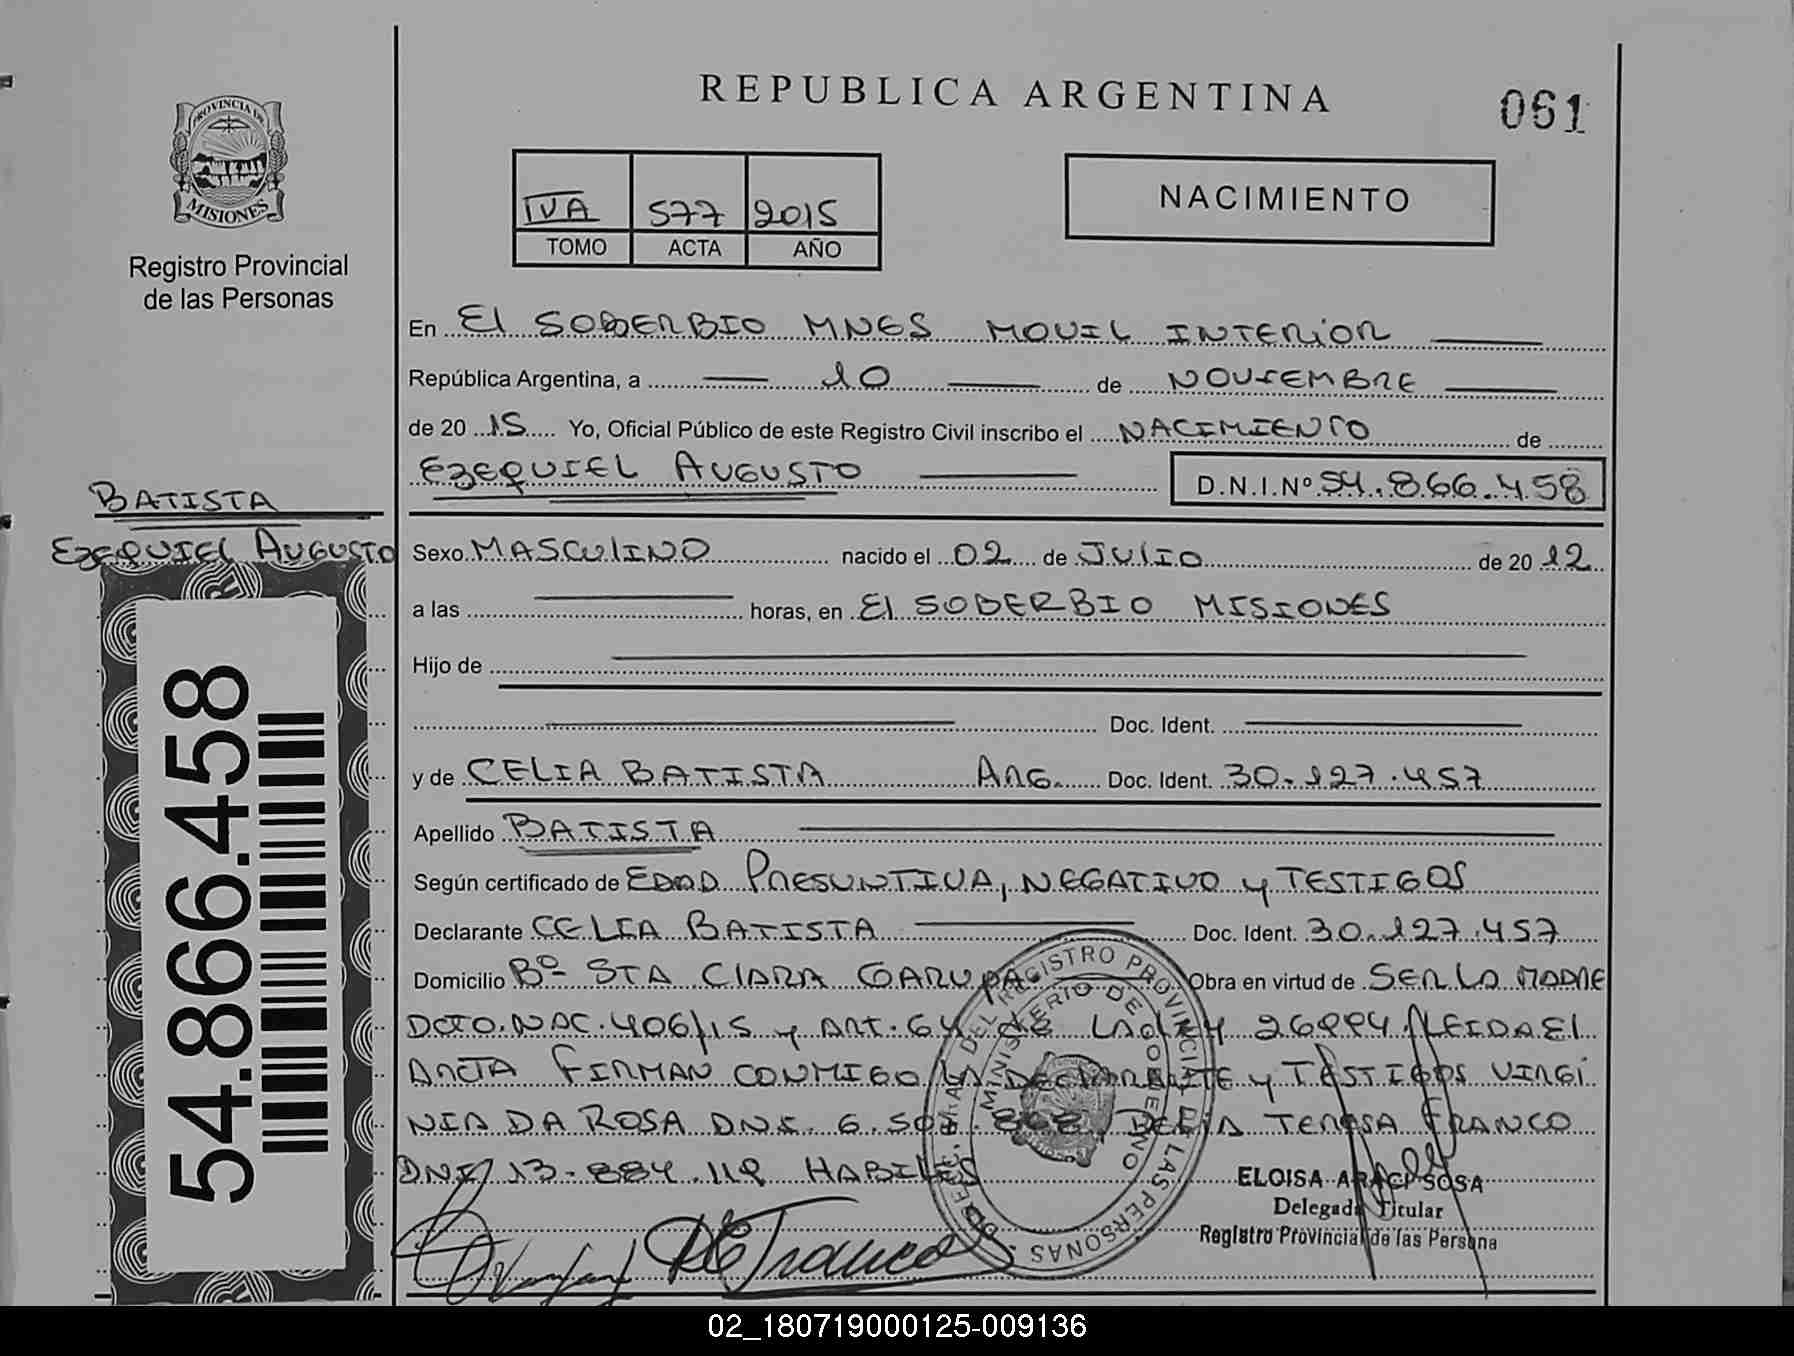 REPUBLICA ARGENTINA
061
PROVINCIA DE
MISIONES
Registro Provincial
de las Personas
IVA 577 2015
TOMO ACTA AÑO
NACIMIENTO
En El SOBERBIO MNES MOVIL INTERIOR
República Argentina, a 10 de NOVIEMBRE
de 2015 Yo, Oficial Público de este Registro Civil inscribo el NACIMIENTO de
EZEQUIEL AUGUSTO D.N.I.Nº 54.866.458
BATISTA
EZEQUIEL AUGUSTO
54.866.458
Sexo MASCULINO nacido el 02 de JULIO de 2012
a las horas, en El SOBERBIO MISIONES
Hijo de
Doc. Ident.
y de CELIA BATISTA ARG. Doc. Ident. 30.127.457
Apellido BATISTA
Según certificado de EDAD PRESUNTIVA, NEGATIVO y TESTIGOS
Declarante CELIA BATISTA Doc. Ident. 30.127.457
Domicilio Bº STA ClARA GARUPA Obra en virtud de SER LA MADRE
DCTO. NAC. 406/15 y ART. 64 de LA LEY 26994. LEIDA El
ACTA FIRMAN CONMIGO LA DECLARANTE y TESTIGOS VIRGI
NIA DA ROSA DNI. 6. DELIA TERESA FRANCO
DNI 13.884.119 HABILES
DIRECC. GRAL. DEL REGISTRO PROVINCIAL DE LAS PERSONAS
MINISTERIO DE GOBIERNO
ELOISA ARACI SOSA
Delegada Titular
Registro Provincial de las Persona
02_180719000125-009136